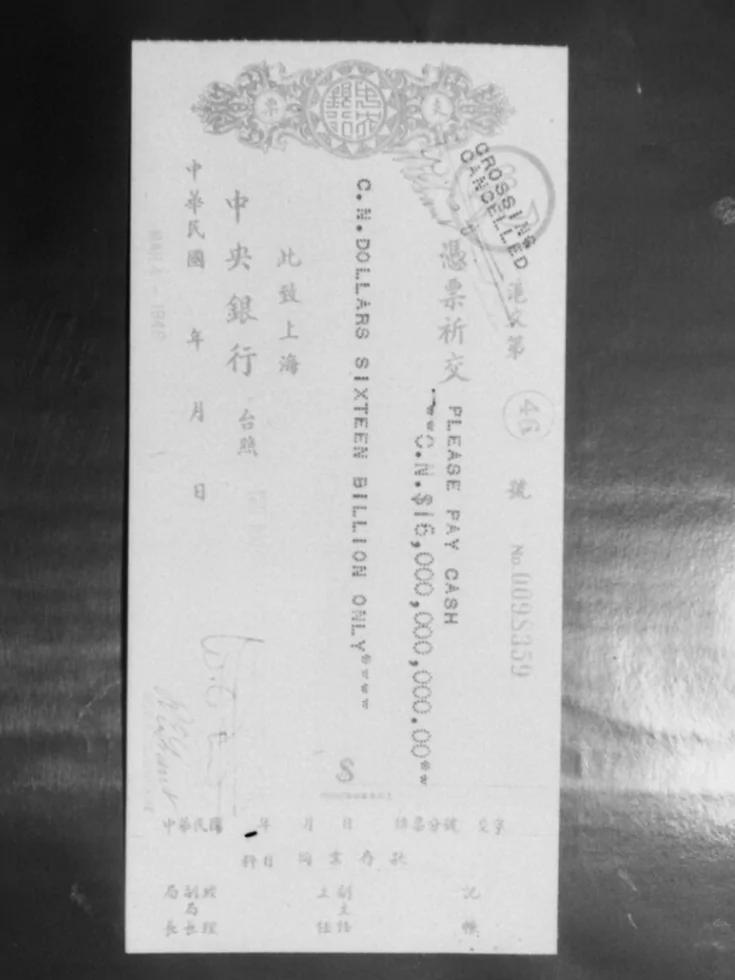 支 中央銀行 票
CROSSING
CANCELLED
港支第 46 號 No.0098359
憑票祈交 PLEASE PAY CASH
**C.N.$16,000,000,000.00**
C.N.DOLLARS SIXTEEN BILLION ONLY****
此致上海
中央銀行 台照
中華民國 年 月 日
MAR 4 - 1948
S
中華民國 年 月 日
科目 同業存款
記帳